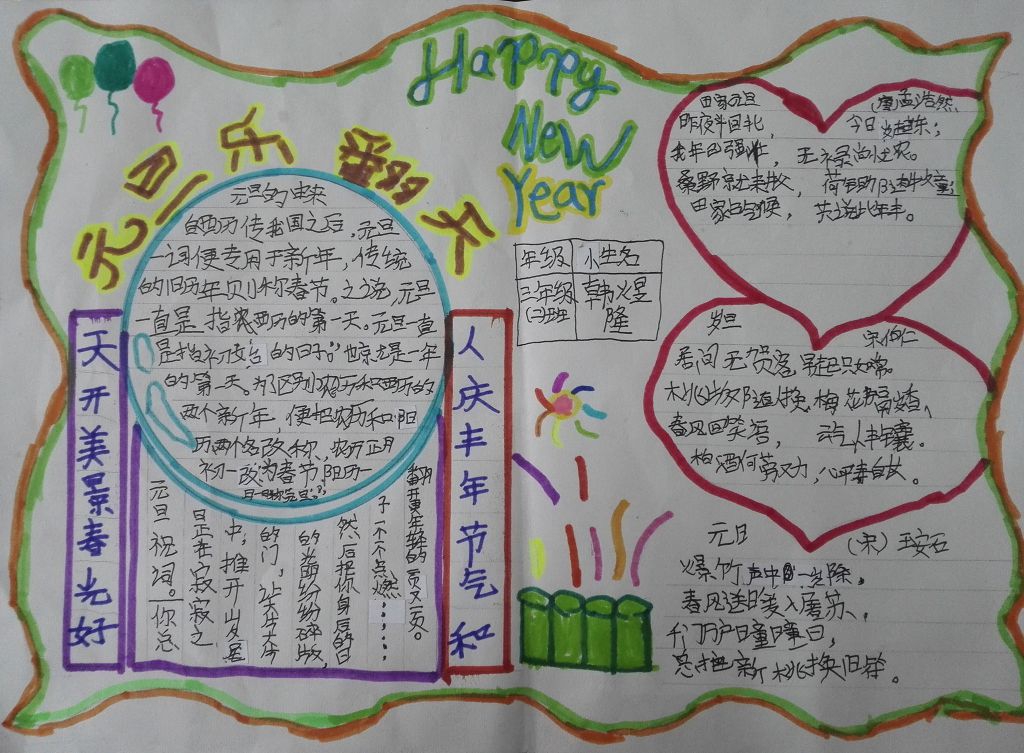 Happy
New
Year
元旦乐翻天
元旦的由来
自西历传我国之后,元旦
一词便专用于新年,传统
的旧历年则称春节。之说,元旦
一直是指农西历的第一天。元旦一直
的日子。"也就是一年
的第一天。为了区别农历和西历的
两个新年,便把农历和阳
历两个名改称,农历正月
初一改为春节,阳历一
天开美景春光好
人庆丰年节气和
年级
姓名
三年级
(二)班
韩煜
隆
元旦祝词。你总
是正在寂寂之
中,推开岁月
的门,
的
纷纷碎散,
然后把你身后的日
子一个个点燃……
翻开更年轻的一页又一页。
田家元旦
(唐)孟浩然
昨夜斗回北,今日岁起东;
我年已强仕,无禄尚忧农。
桑野就耕父,荷锄随牧童;
田家占气候,共说此年丰。
岁旦
宋伯仁
居间无贺客,早起只如常。
桃版随人换,梅花隔岁香。
春风回笑语,云气卜丰穰。
柏酒何劳劝,心平寿自长。
元日
(宋)王安石
爆竹声中一岁除,
春风送暖入屠苏、
千门万户曈曈日,
总把新桃换旧符。